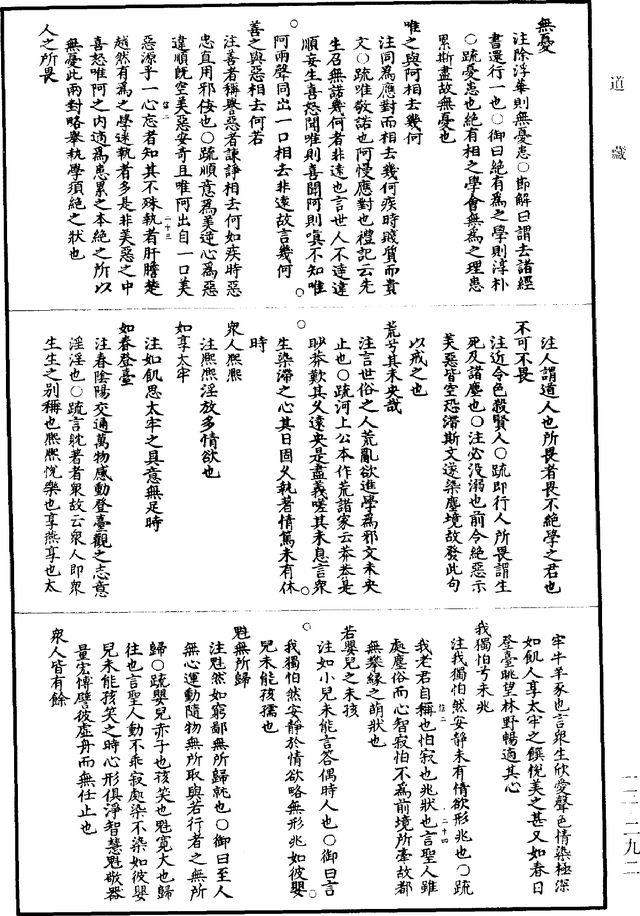 道藏
無憂
注除浮華則無憂患○節解曰謂去諸經
書還行一也○御曰絕有為之學則淳朴
○疏憂患也絕有相之學會無為之理患
累斯盡故無憂也
唯之與阿相去幾何
注同為應對而相去幾何疾時賤質而貴
文○疏唯敬諾也阿慢應對也禮記云先
生召無諾幾何者非遠也言世人不達違
順妄生喜怒聞唯則喜聞阿則嗔不知唯
阿兩聲同出一口相去非遠故言幾何
善之與惡相去何若
注善者稱譽惡者諫諍相去何如疾時惡
忠直用邪佞也○疏順意為美逆心為惡
違順旣空美惡安寄且唯阿出自一口美
惡源乎一心忘者知其不殊執者肝膽楚
越然有為之學迷執者多是非美惡之中
喜怒唯阿之內適為患累之本絕之所以
無憂此兩對略舉執學須絕之狀也
人之所畏
注人謂道人也所畏者畏不絕學之君也
不可不畏
注近令色殺賢人○疏即行人所畏謂生
死及諸塵也○注必沒溺也前令絕惡示
美惡皆空恐滯斯文遂染塵境故發此句
以戒之也
荒兮其未央哉
注言世俗之人荒亂欲進學為邪文未央
止也○疏河上公本作荒諸家云莽莽是
眇莽歎其久遠央是盡義嗟其未息言衆
生染滯之心其日固久執著情篤未有休
時
衆人熙熙
注熙熙淫放多情欲也
如享太牢
注如飢思太牢之具意無足時
如春登臺
注春陰陽交通萬物感動登臺觀之志意
淫淫也○疏言躭著者衆故云衆人即衆
生生之別稱也熙熙悅樂也享燕享也太
牢牛羊豕也言衆生欣愛聲色情染極深
如飢人享太牢之饌悅美之甚又如春日
登臺眺望林野暢適其心
我獨怕兮未兆
注我獨怕然安靜未有情欲形兆也○疏
我老君自稱也怕寂也兆狀也言聖人雖
處塵俗而心智寂怕不為前境所牽故都
無攀緣之萌狀也
若嬰兒之未孩
注如小兒未能言答偶時人也○御曰言
我獨怕然安靜於情欲略無形兆如彼嬰
兒未能孩孺也
魁無所歸
注魁然如窮鄙無所歸就也○御曰至人
無心運動隨物無所取與若行者之無所
歸○疏嬰兒赤子也孩笑也魁寬大也歸
往也言聖人動不乖寂處染不染如彼嬰
兒未能孩笑之時心形俱淨智慧魁敬器
量宏博譬彼虛舟而無任止也
衆人皆有餘